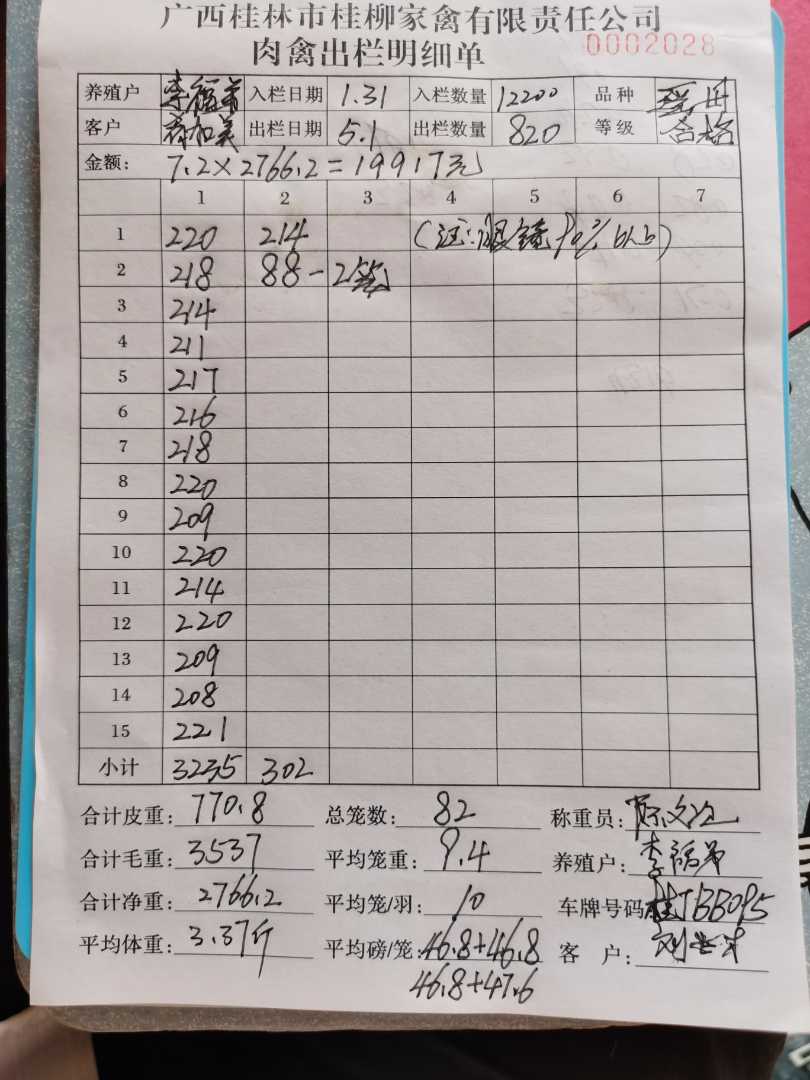 广西桂林市桂柳家禽有限责任公司
肉禽出栏明细单 0002028
养殖户 李福弟 入栏日期 1.31 入栏数量 12200 品种
客户 出栏日期 5.1 出栏数量 820 等级 合格
金额: 7.2×2766.2=19917元
1 2 3 4 5 6 7
1 220 214
2 218 88-2笼
3 214
4 211
5 217
6 216
7 218
8 220
9 209
10 220
11 214
12 220
13 209
14 208
15 221
小计 3235 302
合计皮重: 770.8 总笼数: 82 称重员:
合计毛重: 3537 平均笼重: 9.4 养殖户: 李福弟
合计净重: 2766.2 平均笼/羽: 10 车牌号码 桂JBB095
平均体重: 3.37斤 平均磅/笼: 46.8+46.8 客 户:
46.8+47.6